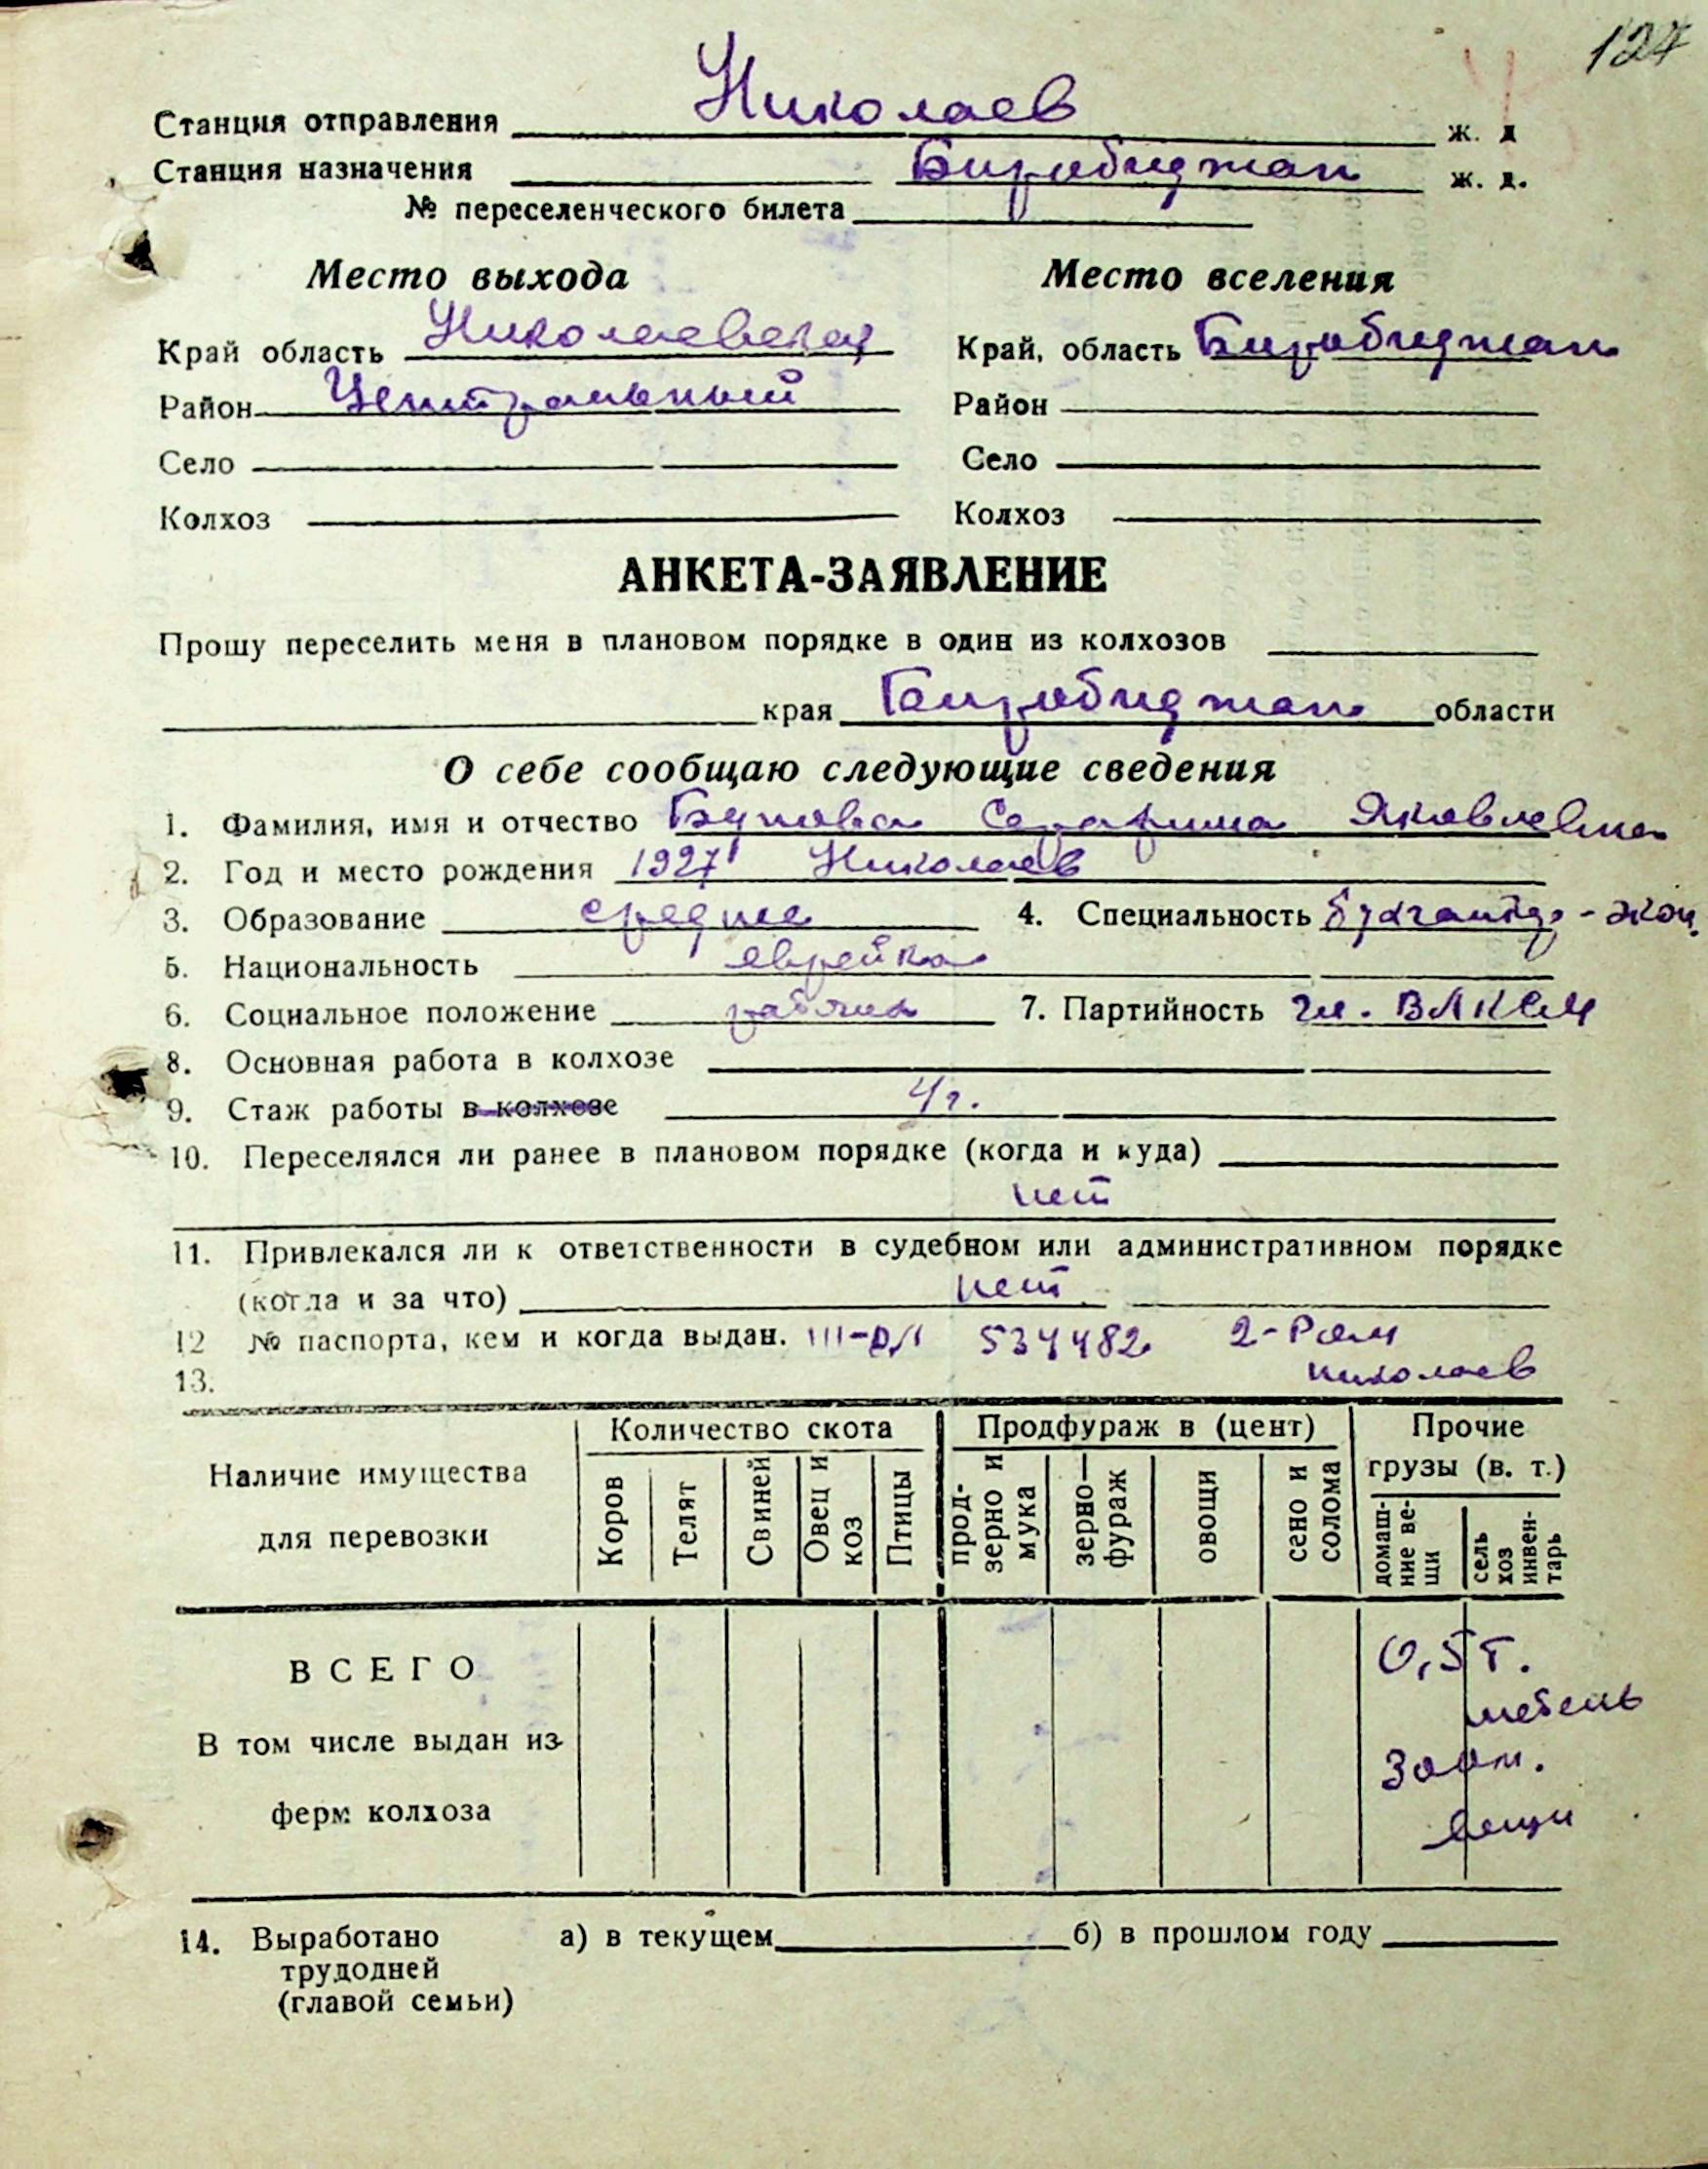 127
Станция отправления Николаев ж. д
Станция назначения Биробиджан ж. д.
№ переселенческого билета
Место выхода Место вселения
Край область Николаевская Край, область Биробиджан
Район Центральный Район
Село Село
Колхоз Колхоз
АНКЕТА-ЗАЯВЛЕНИЕ
Прошу переселить меня в плановом порядке в один из колхозов
края Биробиджан области
О себе сообщаю следующие сведения
1. Фамилия, имя и отчество Серафима Яковлевна
2. Год и место рождения 1927 Николаев
3. Образование среднее 4. Специальность бухгалтер-экон.
5. Национальность еврейка
6. Социальное положение рабочая 7. Партийность чл. ВЛКСМ
8. Основная работа в колхозе
9. Стаж работы в колхозе 4 г.
10. Переселялся ли ранее в плановом порядке (когда и куда)
нет
11. Привлекался ли к ответственности в судебном или административном порядке
(когда и за что) нет
12 № паспорта, кем и когда выдан. 534482 2-Р
13. Николаев
Наличие имущества для перевозки
Количество скота Продфураж в (цент) Прочие грузы (в. т.)
Коров Телят Свиней Овец и коз Птицы прод-зерно и мука зерно-фураж овощи сено и солома домаш-ние ве-щи сель хоз инвен-тарь
ВСЕГО 0,5 т.
мебель
В том числе выдан из
ферм колхоза вещи
14. Выработано а) в текущем б) в прошлом году
трудодней
(главой семьи)